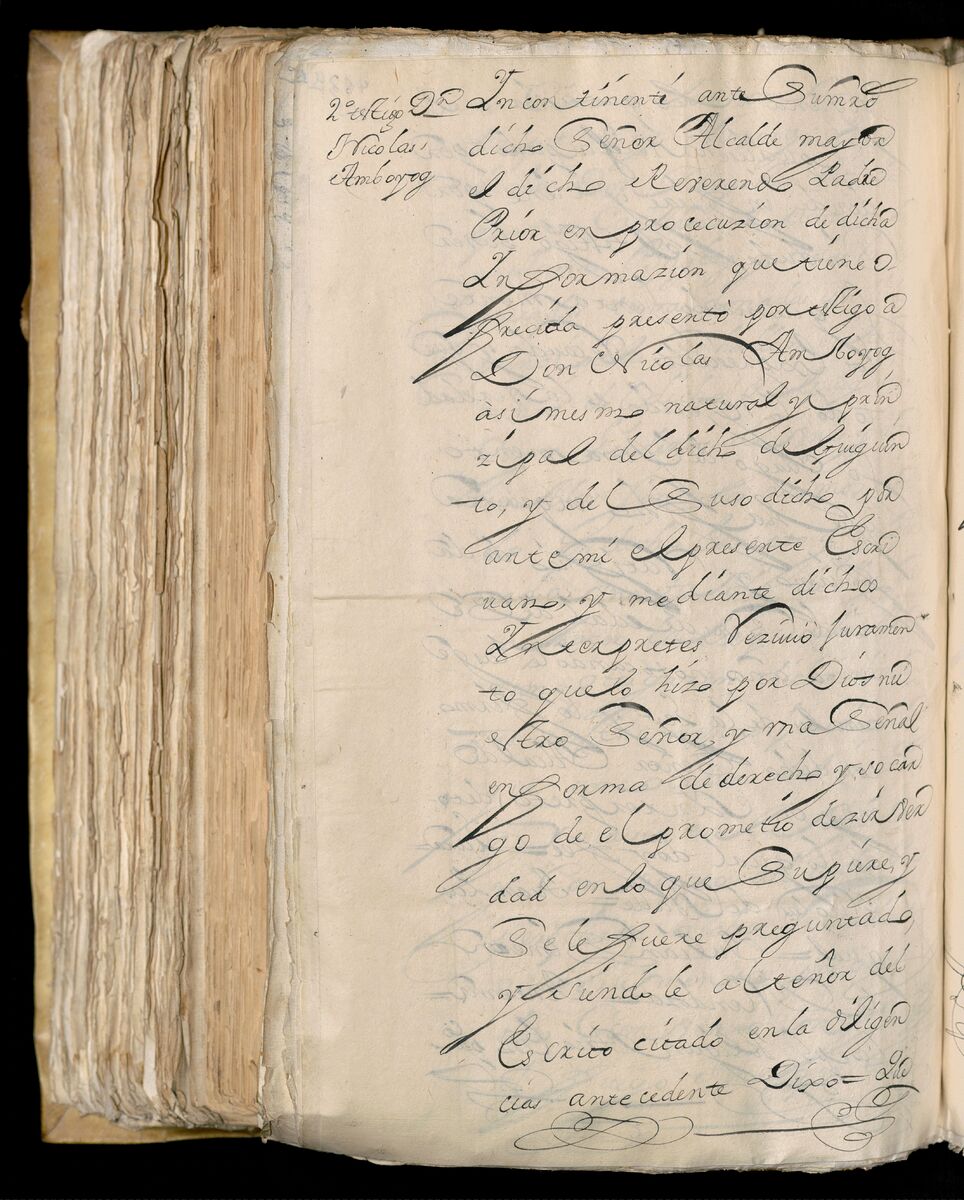 2º testigo Dn
Nicolas
Amboyog
Yncontinente ante Sumrd
dicho Señor Alcalde mayor
el dicho Reverendo Padre
Prior en procecuzion de dicha
Informazion que tiene o-
frecida presentò por testigo a
Don Nicolas Amboyog
àsi mesmo natural y prin
zipal del dicho de Guiguin
to, y del Susodicho por
ante mi el presente Escri
uano, y mediante dichos
Ynterpretes Rezivió Juramen
to que lo hizo por Dios nu
estro Señor, y ma Señal
en forma de derecho y so car
go de el prometió dezir Ver
dad en lo que Supiere, y
Se le fuere preguntado,
y siendole al tenor del
Escrito citado en la diligen
cias antecedente Dixo= Que